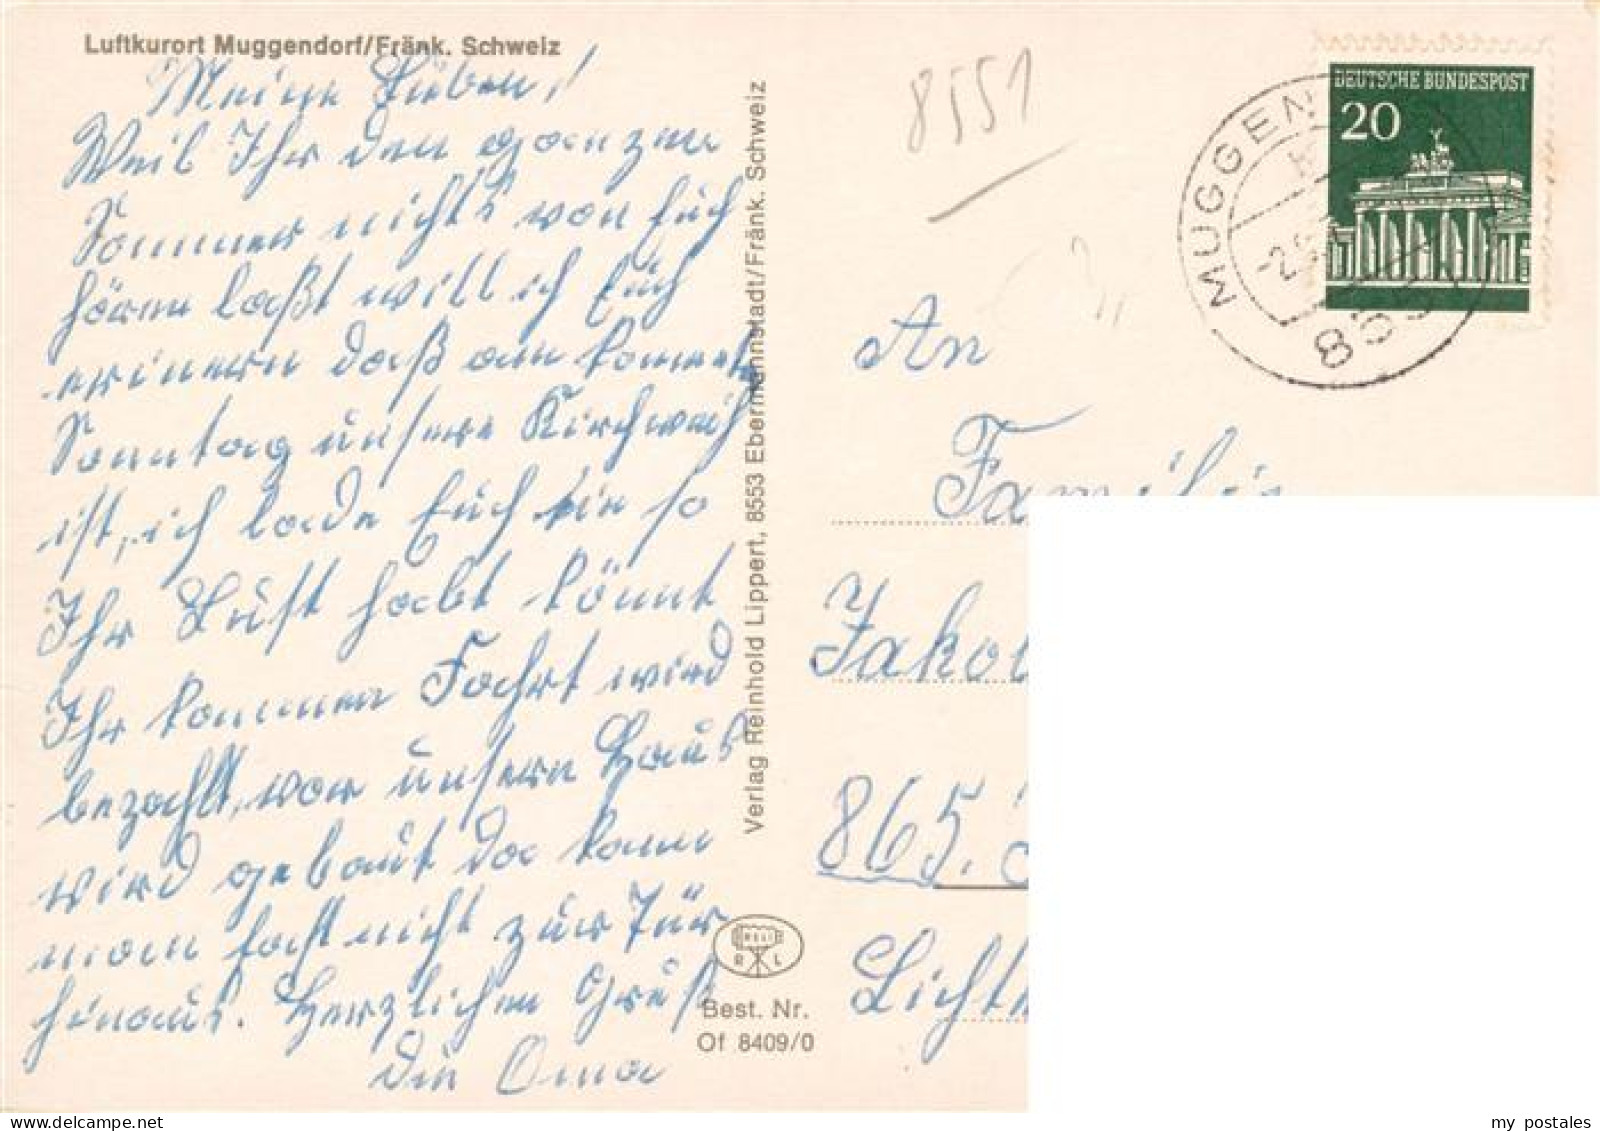 Luftkurort Muggendorf/Fränk. Schweiz
Meine Lieben!
Weil Ihr den ganzen
Sommer nichts von Euch
hören laßt will ich Euch
erinern daß am kommeden
Sonntag unsere Kirchweih
ist, ich lade Euch ein so
Ihr Lust habt könnt
Ihr kommen Fahrt wird
bezahlt, vor unsern Haus
wird gebaut da kann
man fast nicht zur Tür
hinaus. Herzlichen Gruß
die Oma
Verlag Reinhold Lippert, 8553 Ebermannstadt/Fränk. Schweiz
RELI
R L
Best. Nr.
Of 8409/0
8551
DEUTSCHE BUNDESPOST
20
MUGGEN
-2.9.
855
An
Familie
Jakob
865.
Licht
my postales